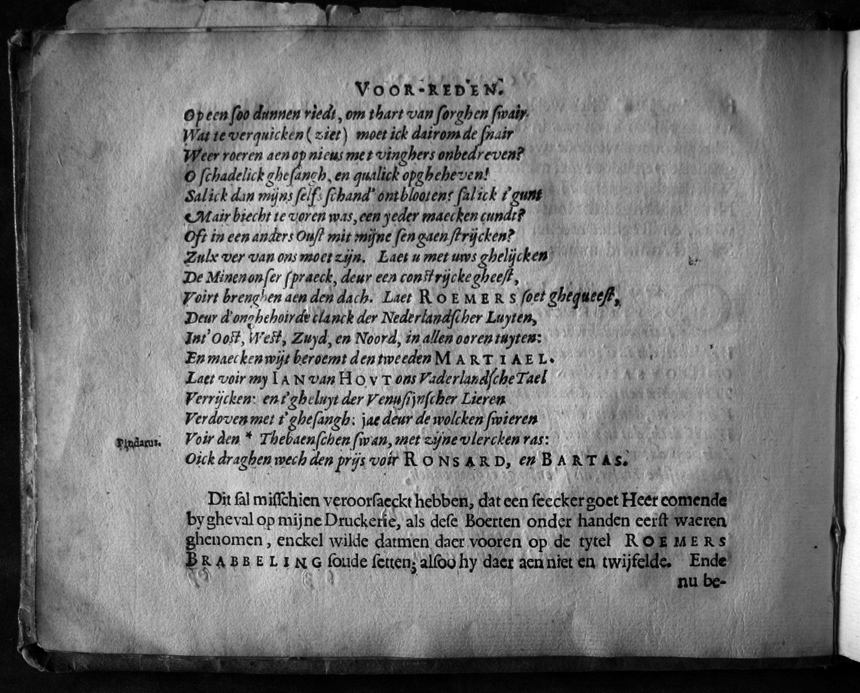 VOOR-REDEN.
Op een soo dunnen riedt, om thart van sorghen swair
Wat te verquicken (ziet) moet ick dairom de snair
Weer roeren aen op nieus met vinghers onbedreven?
O schadelick ghesangh, en qualick opgheheven!
Sal ick dan mijns selfs schand' ontblooten? sal ick t'gunt
Mair biecht te voren was, een yeder maecken cundt?
Oft in een anders Oust mit mijne sengaen strijcken?
Zulx ver van ons moet zijn. Laet u met uws ghelijcken
De Minen onser spraeck, deur een constrijcke gheest,
Voirt brenghen aen den dach. Laet ROEMERS soet ghequeest,
Deur d'onghehoirde clanck der Nederlandscher Luyten,
Int' Oost, West, Zuyd, en Noord, in allen ooren tuyten:
En maecken wijt beroemt den tweeden MARTIAEL.
Laet voir my IAN van HOVT ons Vaderlandsche Tael
Verrijcken: en t'gheluyt der Venusijnscher Lieren
Verdoven met t'ghesangh: jae deur de wolcken swieren
Pindarus. Voir den * Thebaenschen swan, met zijne vlercken ras:
Oick draghen wech den prijs voir RONSARD, en BARTAS.
Dit sal misschien veroorsaeckt hebben, dat een seecker goet Heer comende
by gheval op mijne Druckerie, als dese Boerten onder handen eerst waeren
ghenomen, enckel wilde datmen daer vooren op de tytel ROEMERS
BRABBELING soude setten; alsoo hy daer aen niet en twijfelde. Ende
nu be-